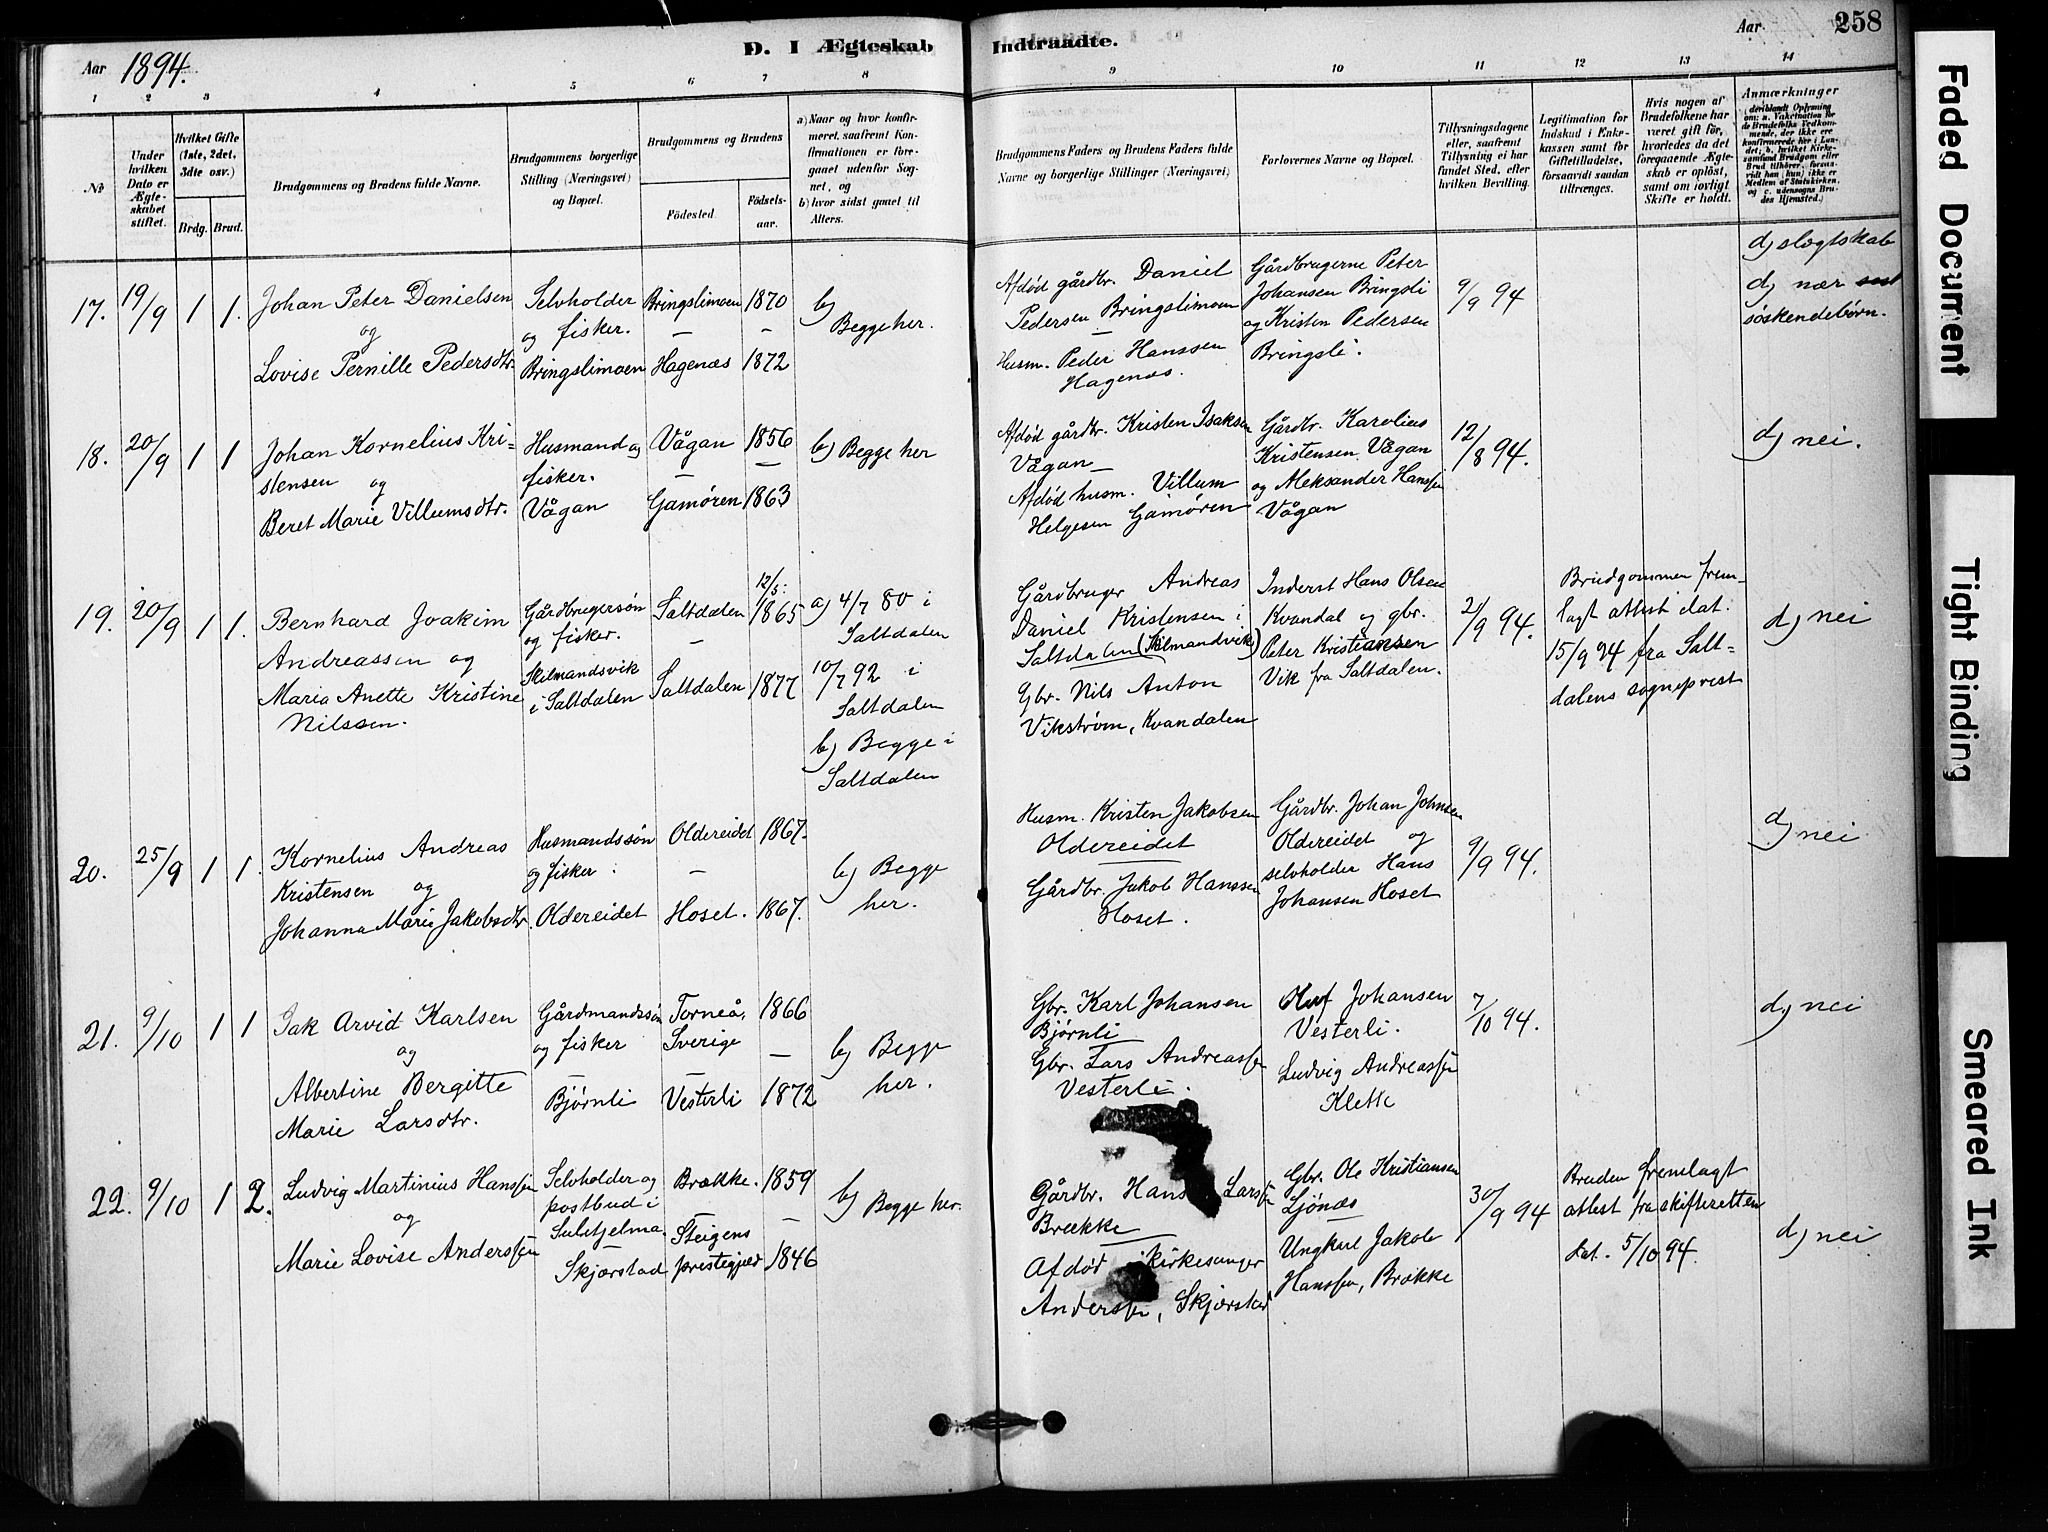 Aar 1894.
D. I Ægteskab Indtraadte.
Aar 258
1 2 3 4 5 6 7 8 9 10 11 12 13 14
No
Under hvilken Dato er Ægteskabet stiftet.
Hvilket Gifte (1ste, 2det, 3die osv.)
Brdg. Brud.
Brudgommens og Brudens fulde Navne.
Brudgommens borgerlige Stilling (Næringsvei) og Bopæl.
Brudgommens og Brudens
Födested.
Födselsaar.
a) Naar og hvor konfirmeret, saafremt Konfirmationen er foregaaet udenfor Sognet, og
b) hvor sidst gaaet til Alters.
Brudgommens Faders og Brudens Faders fulde Navne og borgerlige Stillinger (Næringsvei)
Forlovernes Navne og Bopæl.
Tillysningsdagene eller, saafremt Tillysning ei har fundet Sted, efter hvilken Bevilling.
Legitimation for Indskud i Enkekassen samt for Giftetilladelse, forsaavidt saadan tiltrænges.
Hvis nogen af Brudefolkene har været gift för, hvorledes da det foregaaende Ægteskab er oplöst, samt om lovligt Skifte er holdt.
Anmærkninger (deriblandt Oplysning om: a. Vakcination for de Brudefolks Vedkommende, der ikke ere konfirmerede her i Landet; b. hvilket Kirkesamfund Brudgom eller Brud tilhörer, forsaavidt han (hun) ikke er Medlem af Statskirken, og c. udensogns Brudes Hjemsted.)
17. 19/9 1 1.
Johan Peter Danielsen
og
Lovise Pernille Pedersdtr.
Selvholder
og fisker.
Bringslimoen
Bringslimoen 1870
– –
Hagenæs 1872
b)
Begge her.
Afdød gårdbr. Daniel
Pedersen Bringslimoen
–
Husm. Peder Hanssen
Hagenæs.
Gårdbrugerne Peter
Johansen Bringsli
og Kristen Pedersen
Bringsli.
9/9 94
d) slægtskab
d) nær
søskendebørn.
18. 20/9 1 1
Johan Kornelius Kri=
stensen og
Beret Marie Villumsdtr.
Husmand og
fisker.
Vågan
Vågan 1856
– –
Gamøren 1863
b) Begge her
Afdød gårdbr. Kristen Isaksen
Vågan –
Afdød husm. Villum
Helgesen Gamøren
Gårdbr. Karolius
Kristensen Vågan
og Aleksander Hanssen
Vågan
12/8 94.
d) nei.
19. 20/9 1 1.
Bernhard Joakim
Andreassen og
Maria Anette Kristine
Nilssen.
Gårdbrugersøn
og fisker.
Skilmandsvik
i Saltdalen
Saltdalen 12/5. 1865
–
Saltdalen 1877
a) 4/7 80 i
Saltdalen
10/7 92 i
Saltdalen
b) Begge i
Saltdalen
Gårdbruger Andreas
Daniel Kristensen i
Saltdalen (Skilmandvik)
Gbr. Nils Anton
Vikstrøm, Kvandalen
Inderst Hans Olsen
Kvandal og gbr.
Peter Kristiansen
Vik fra Saltdalen.
2/9 94.
Brudgommen frem-
lagt attest dat.
15/9 94 fra Salt=
dalens sogneprest
d) nei
20. 25/9 1 1.
Kornelius Andreas
Kristensen og
Johanna Marie Jakobsdtr.
Husmandssøn
og fisker.
Oldereidet
Oldereidet 1867.
–
Hoset. 1867.
b) Begge
her.
Husm. Kristen Jakobsen
Oldereidet
Gårdbr. Jakob Hanssen
Hoset.
Gårdbr. Johan Johnsen
Oldereidet og
selvholder Hans
Johansen Hoset
9/9 94.
d) nei
21. 9/10 1 1
Isak Arvid Karlsen
og
Albertine Bergitte
Marie Larsdtr.
Gårdmandssøn
og fisker
–
Bjørnli
Torneå, 1866
Sverige
– –
Vesterli 1872
b) Begge
her.
Gbr. Karl Johansen
Bjørnli
Gbr. Lars Andreassen
Vesterli.
Oluf Johansen
Vesterli.
Ludvig Andreassen
Klette
7/10 94.
d) nei
22. 9/10 1 2.
Ludvig Martinius Hanssen
og
Marie Lovise Anderssen
Selvholder og
postbud i
Sulitjelma.
Skjærstad
Brække. 1859
– –
Steigens
prestegjæld 1846
b) Begge her.
Gårdbr. Hans Larssen
Brække
Afdød kirkesanger
Anderssen, Skjærstad
Gbr. Ole Kristiansen
Ljønæs
Ungkarl Jakob
Hanssen, Brække
30/9 94
Bruden fremlagt
attest fra skifteretten
dat. 5/10 94.
d) nei
Faded Document
Tight Binding
Smeared Ink